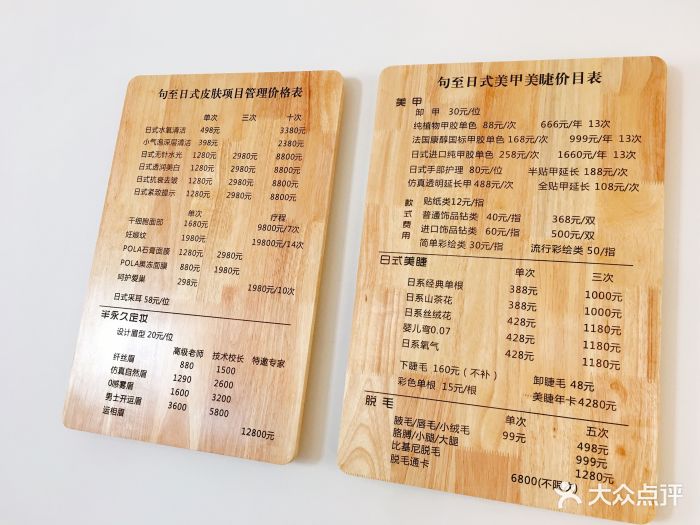 句至日式皮肤项目管理价格表
单次 三次 十次
日式水氧清洁 498元 3380元
小气泡深层清洁 398元 2380元
日式无针水光 1280元 2980元 8800元
日式透润美白 1280元 2980元 8800元
日式抗衰去皱 1280元 2980元 8800元
日式紧致提示 1280元 2980元 8800元
单次 疗程
干细胞面部 1680元 9800元/7次
妊娠纹 1980元 19800元/14次
POLA石膏面膜 1280元 2980元
POLA黑冻面膜 880元 1980元
呵护爱巢 298元 1980元/10次
日式采耳 58元/位
半永久定妆
设计眉型 20元/位
高级老师 技术校长 特邀专家
纤丝眉 880 1500
仿真自然眉 1290 2600
0嗲雾眉 1600 3200
男士开运眉 3600 5800
运相眉 12800元
句至日式美甲美睫价目表
美 甲
卸 甲 30元/位
纯植物甲胶单色 88元/次 666元/年 13次
法国康醇国标甲胶单色 168元/次 999元/年 13次
日式进口纯甲胶单色 258元/次 1660元/年 13次
日式手部护理 80元/位 半贴甲延长 188元/次
仿真透明延长甲 488元/次 全贴甲延长 108元/次
款式费用
贴纸类12元/指
普通饰品钻类 40元/指 368元/双
进口饰品钻类 60元/指 500元/双
简单彩绘类 30元/指 流行彩绘类 50/指
日式美睫 单次 三次
日系经典单根 388元 1000元
日系山茶花 388元 1000元
日系丝绒花 428元 1180元
婴儿弯0.07 428元 1180元
日系氧气 428元 1180元
下睫毛 160元（不补） 卸睫毛 48元
彩色单根 15元/根 美睫年卡4280元
脱 毛 单次 五次
腋毛/唇毛/小绒毛 99元 498元
胳膊/小腿/大腿 999元
比基尼脱毛 1280元
脱毛通卡 6800(不限
大众点评